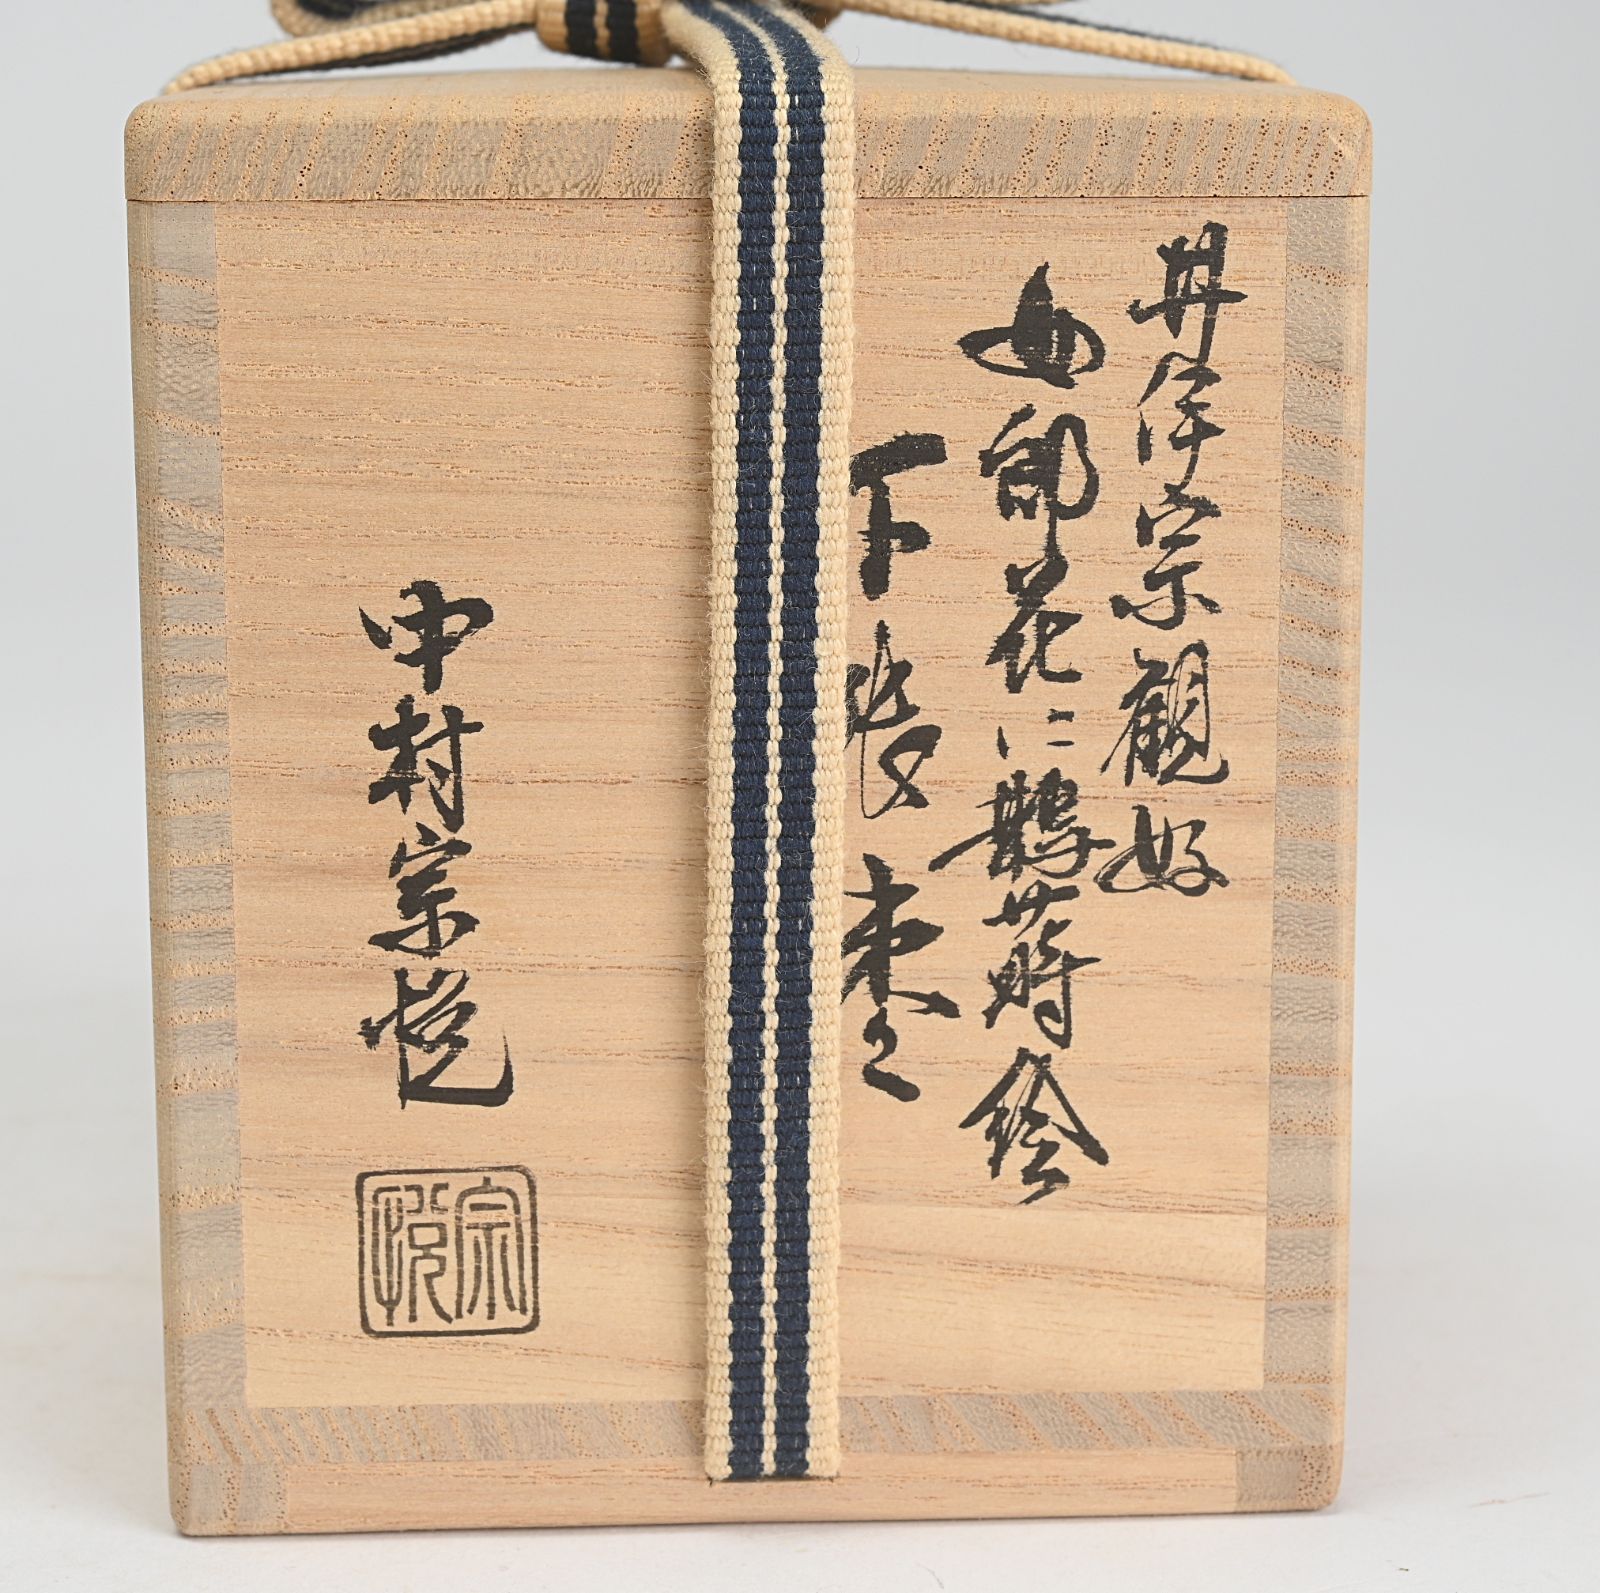 井伊宗観好
女郎花に鶉蒔絵
下張棗
中村宗悦
宗悦